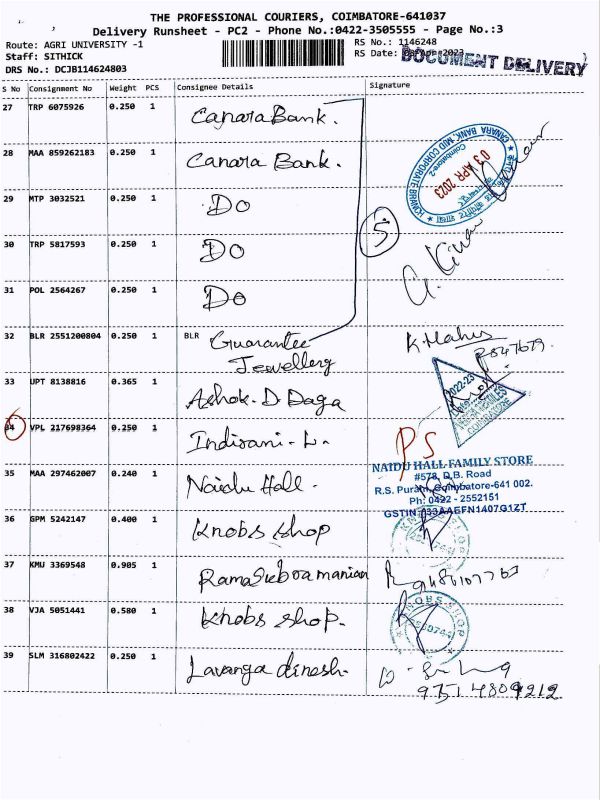 THE PROFESSIONAL COURIERS, COIMBATORE-641037
Delivery Runsheet - PC2 - Phone No.:0422-3505555 - Page No.:3
Route: AGRI UNIVERSITY -1
RS No.: 1146248
Staff: SITHICK
RS Date: Apr-2023
DOCUMENT DELIVERY
DRS No.: DCJB114624803
S No Consignment No Weight PCS Consignee Details Signature
27 TRP 6075926 0.250 1 Canara Bank.
28 MAA 859262183 0.250 1 Canara Bank.
CANARA BANK, MID CORPORATE BRANCH
Coimbatore-2
03 APR 2023
29 MTP 3032521 0.250 1 Do
5
30 TRP 5817593 0.250 1 Do
31 POL 2564267 0.250 1 Do
32 BLR 2551200804 0.250 1 BLR Guarantee
Jewellery
33 UPT 8138816 0.365 1 Ashok.D Daga
2022-23
COIMBATORE
34 VPL 217698364 0.250 1 Indirani-L. PS
35 MAA 297462007 0.240 1 Naidu Hall.
NAIDU HALL FAMILY STORE
#578, D.B. Road
R.S. Puram, Coimbatore-641 002.
Ph: 0422 - 2552151
GSTIN :33AAEFN1407G1ZT
36 GPM 5242147 0.400 1 Knobs shop
37 KMU 3369548 0.905 1 Ramasubramanian
38 VJA 5051441 0.580 1 Knobs shop.
KNOBS SHOP
39 SLM 316802422 0.250 1 Lavanga dinesh.